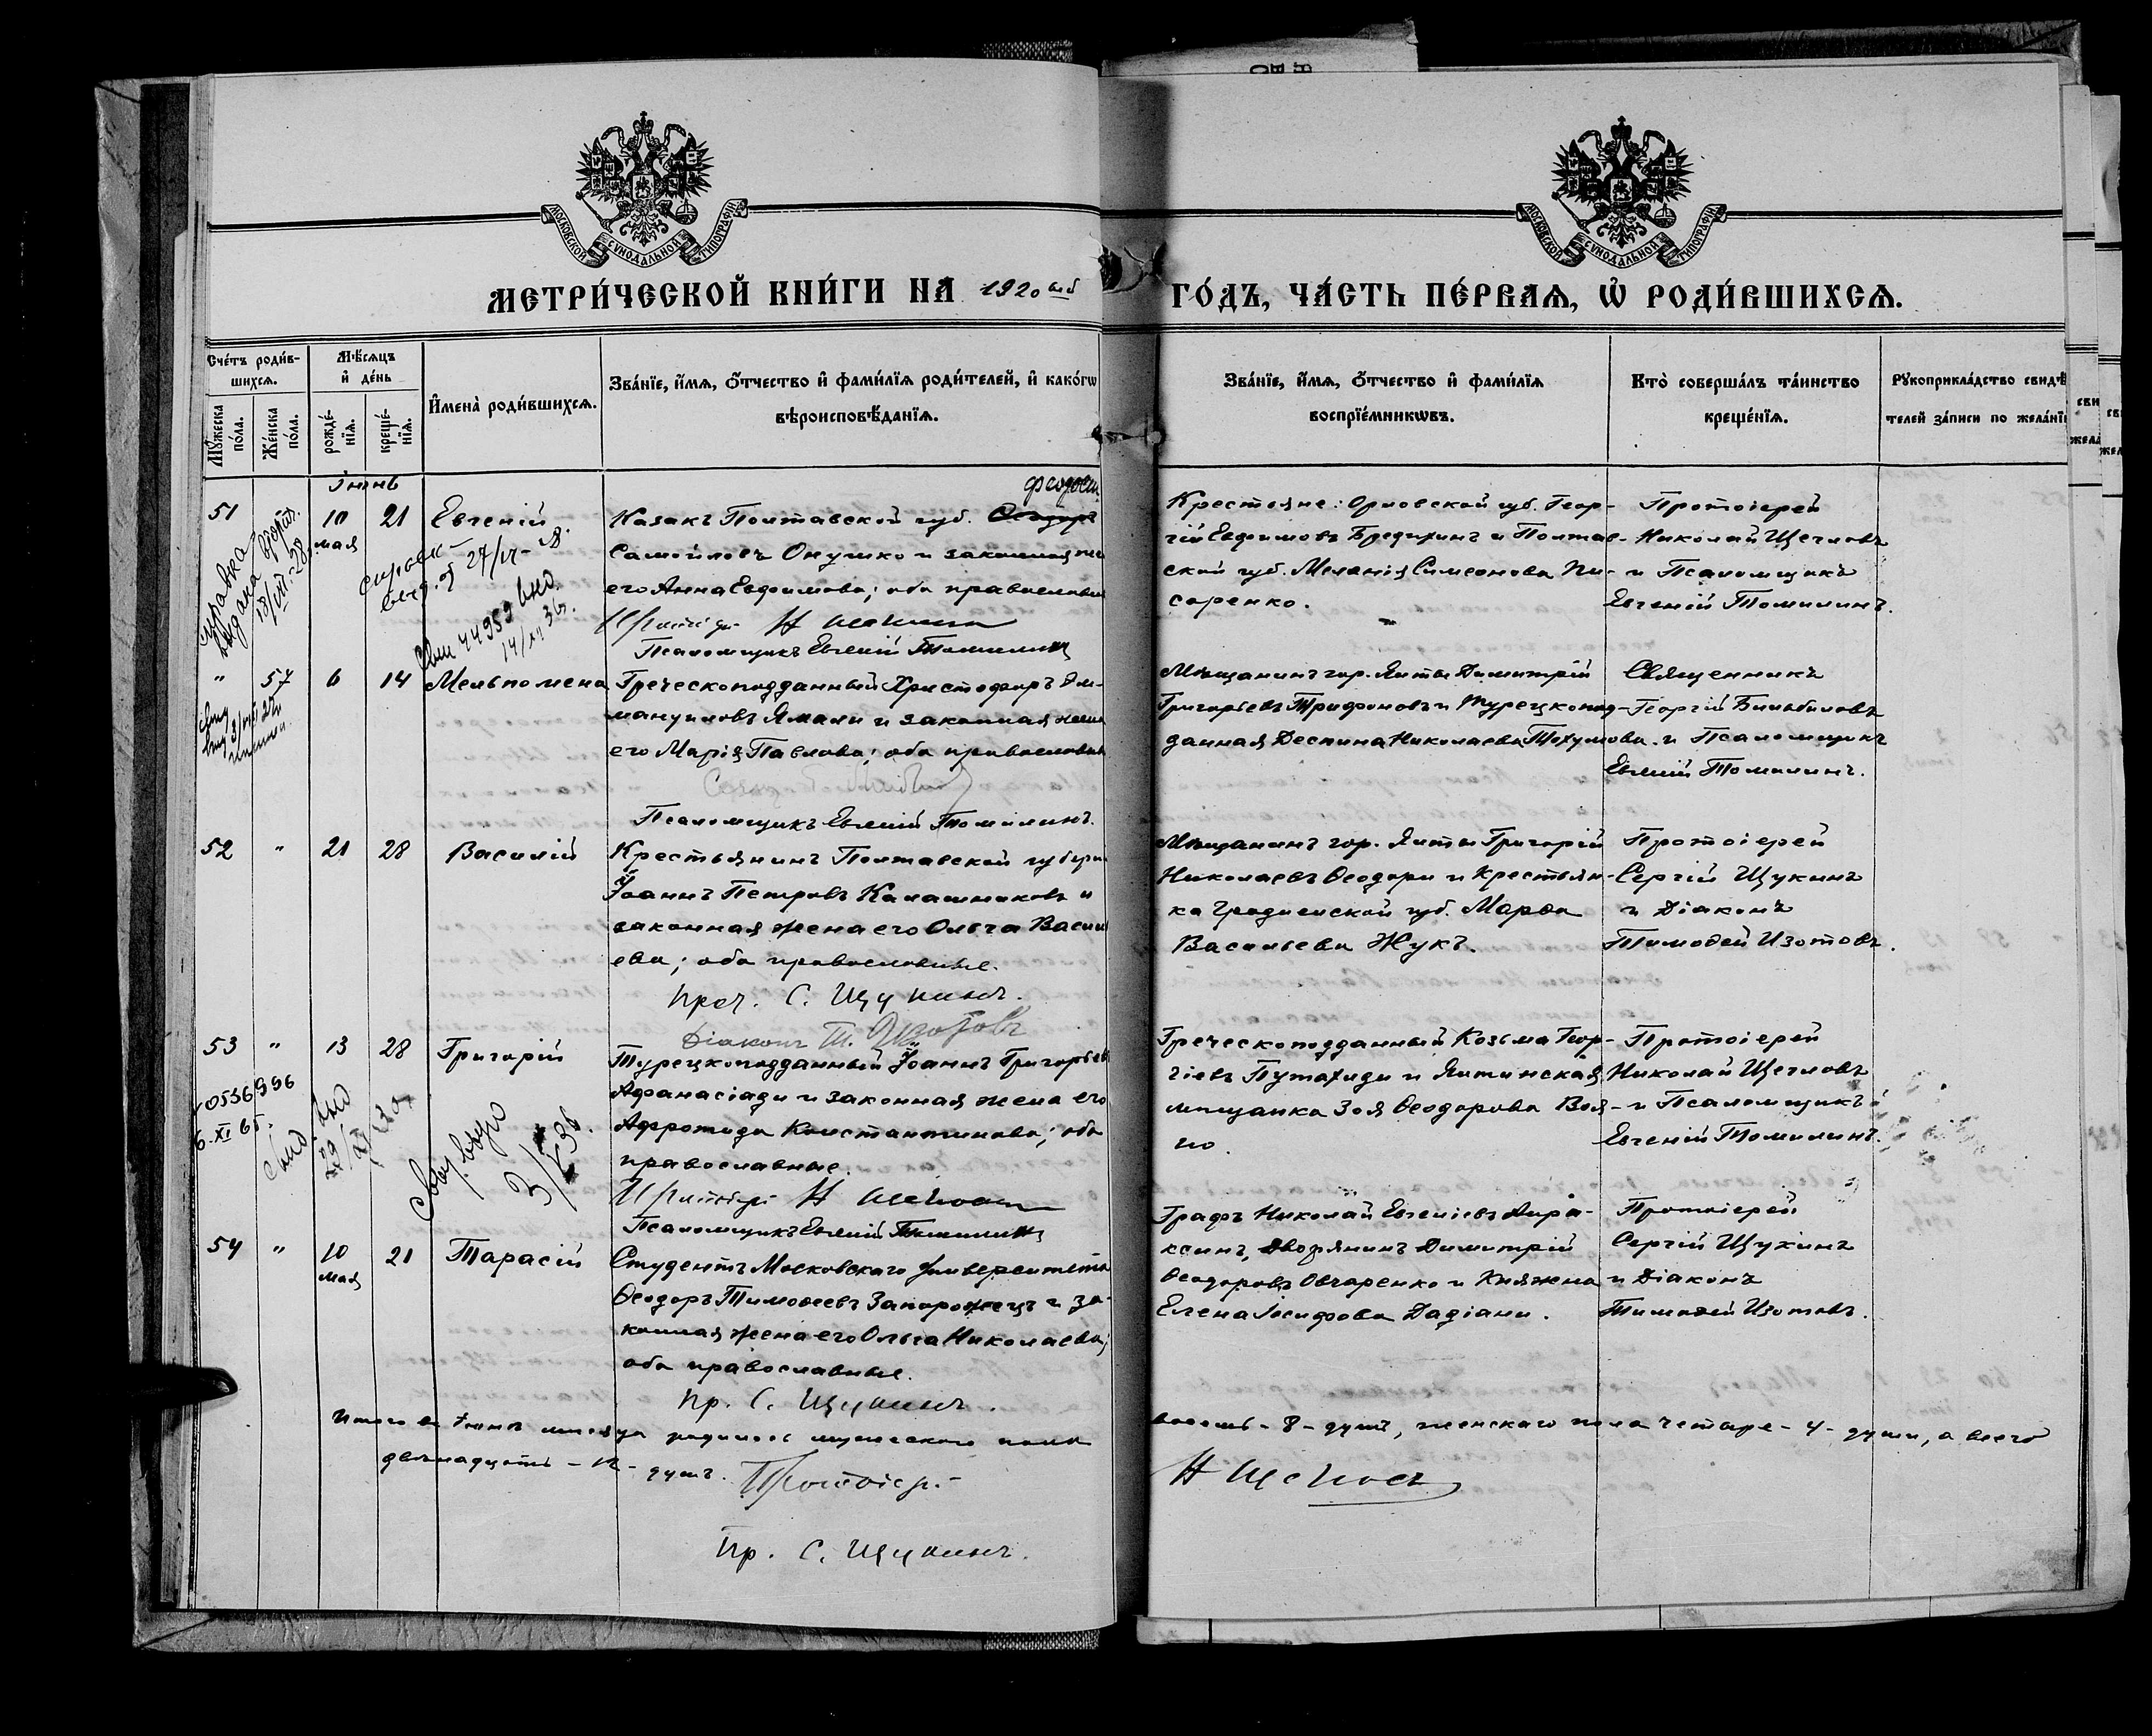 МОСКОВСКОЙ СУНОДАЛЬНОЙ ТИПОГРАФІИ
МОСКОВСКОЙ СУНОДАЛЬНОЙ ТИПОГРАФІИ
МЕТРИ́ЧЕСКОЙ КНИ́ГИ НА 1920 ый
ГО́ДЪ, ЧА́СТЬ ПЕ́РВАѦ, Ѡ҆ РОДИ́ВШИХСѦ.
Сче́тъ роди́в-
шихсѧ.
Мꙋ́жеска по́ла.
Же́нска по́ла.
Мѣ́сѧцъ
и҆ де́нь
рожде́-
нїѧ.
креще́-
нїѧ.
И҆мена̀ роди́вшихсѧ.
Зва́нїе, и҆́мѧ, ѻ҆́тчество и҆ фами́лїѧ роди́телей, и҆ како́гѡ
вѣроисповѣ́данїѧ.
Зва́нїе, и҆́мѧ, ѻ҆́тчество и҆ фами́лїѧ
воспрїе́мникѡвъ.
Кто̀ соверша́лъ та́инство
креще́нїѧ.
Рꙋкоприкла́дство свидѣ́
телей за́писи по жела́нї
Іюнь
51
10
мая
21
Евгеній
Казакъ Полтавской губ. Ѳеодоръ
Самойловъ Онушко и законная же
его Анна Евфимова; оба православн
Н Щегловъ
Псаломщикъ Евгеній Томилинъ
Крестьяне: Орловской губ. Геор-
гій Евфимовъ Бредихинъ и Полтав-
ской губ. Меланія Симеонова Пи-
саренко.
Протоіерей
Николай Щегловъ
и Псаломщикъ
Евгеній Томилинъ.
справка
выдана
"
57
6
14
Мельпомена
Греческоподданный Христофоръ Эм-
мануиловъ Ямали и законная жена
его Марія Павлова; оба православн
Псаломщикъ Евгеній Томилинъ.
Мѣщанинъ гор. Ялты Димитрій
Григорьевъ Трифоновъ и Турецкопод-
данная Деспина Николаева
Священникъ
Георгій
и Псаломщикъ
Евгеній Томилинъ.
52
"
21
28
Василій
Крестьянинъ Полтавской губерн
Іоаннъ Петровъ Калашниковъ и
законная жена его Ольга Васил
ева; оба православные.
Прот. С. Щукинъ.
Діаконъ Т. Изотовъ
Мѣщанинъ гор. Ялты Григорій
Николаевъ Ѳеодори и Крестьян-
ка Гродненской губ. Марѳа
Васильева Жукъ.
Протоіерей
Сергій Щукинъ
и Діаконъ
Тимоѳей Изотовъ.
53
"
13
28
Григорій
Турецкоподданный Іоаннъ Григорьев
Афанасіади и законная жена его
Афротида Константинова; оба
православные.
Н Щегловъ
Псаломщикъ Евгеній Томилинъ
Греческоподданный Козьма Геор-
гіевъ Путахиди и Ялтинская
мѣщанка Зоя Ѳеодорова Воя-
но.
Протоіерей
Николай Щегловъ
и Псаломщикъ
Евгеній Томилинъ.
54
"
10
мая
21
Тарасій
Студентъ Московскаго Университета
Ѳеодоръ Тимоѳеевъ Запорожецъ и за-
конная жена его Ольга Николаева;
оба православные.
Пр. С. Щукинъ.
Графъ Николай Евгеніевъ Апра-
ксинъ, Дворянинъ Димитрій
Ѳеодоровъ Овчаренко и Княжна
Елена Іосифова Дадіани.
Протоіерей
Сергій Щукинъ
и Діаконъ
Тимоѳей Изотовъ.
Итого въ Іюнѣ мѣсяцѣ родилось мужескаго пола
восемь - 8 - душъ, женскаго пола четыре - 4 - души, а всего
двѣнадцать - 12 - душъ. Протоіер.
Н Щегловъ
Пр. С. Щукинъ.